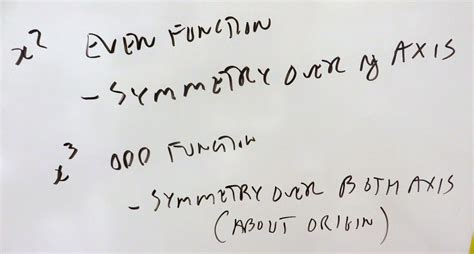 x² EVEN FUNCTION
- SYMMETRY OVER y AXIS
x³ ODD FUNCTION
- SYMMETRY OVER BOTH AXIS
(ABOUT ORIGIN)